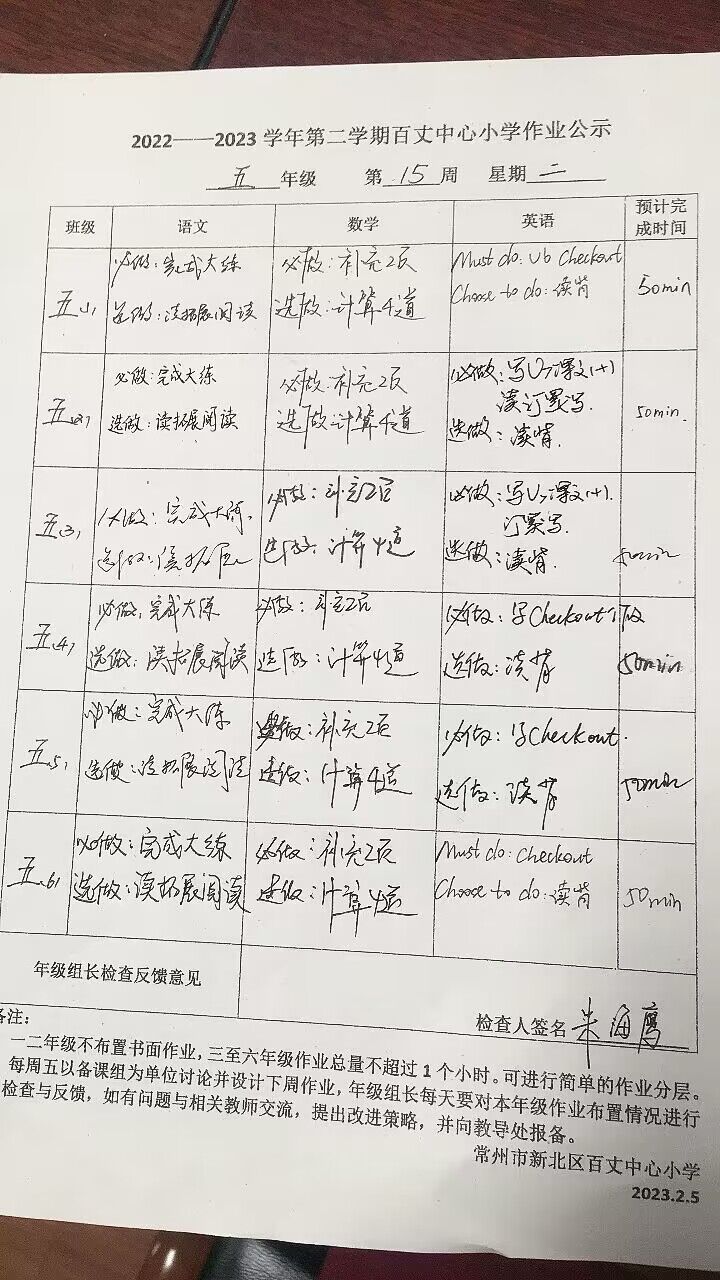 2022——2023学年第二学期百丈中心小学作业公示
五 年级 第 15 周 星期 二
班级 语文 数学 英语 预计完成时间
五(1)
必做:完成大练
选做:读拓展阅读
必做:补充2页
选做:计算4道
Must do: U6 Checkout
Choose to do: 读背
50min
五(2)
必做:完成大练
选做:读拓展阅读
必做:补充2页
选做:计算4道
必做:写U7课文(+)
读订默写.
选做:读背.
50min.
五(3)
必做:完成大练.
选做:读拓展
必做:补充2页
选做:计算4道
必做:写U7课文(+).
订默写.
选做:读背.
50min
五(4)
必做:完成大练
选做:读拓展阅读
必做:补充2页
选做:计算4道
必做:写Checkout
选做:读背
50min
五(5)
必做:完成大练
选做:读拓展阅读
必做:补充2页
选做:计算4道
必做:写Checkout.
选做:读背
50min
五(6)
必做:完成大练
选做:读拓展阅读
必做:补充2页
选做:计算4道
Must do: Checkout
Choose to do: 读背
50min
年级组长检查反馈意见
检查人签名 朱海鹰
备注:
一二年级不布置书面作业,三至六年级作业总量不超过1个小时。可进行简单的作业分层。
每周五以备课组为单位讨论并设计下周作业,年级组长每天要对本年级作业布置情况进行
检查与反馈,如有问题与相关教师交流,提出改进策略,并向教导处报备。
常州市新北区百丈中心小学
2023.2.5